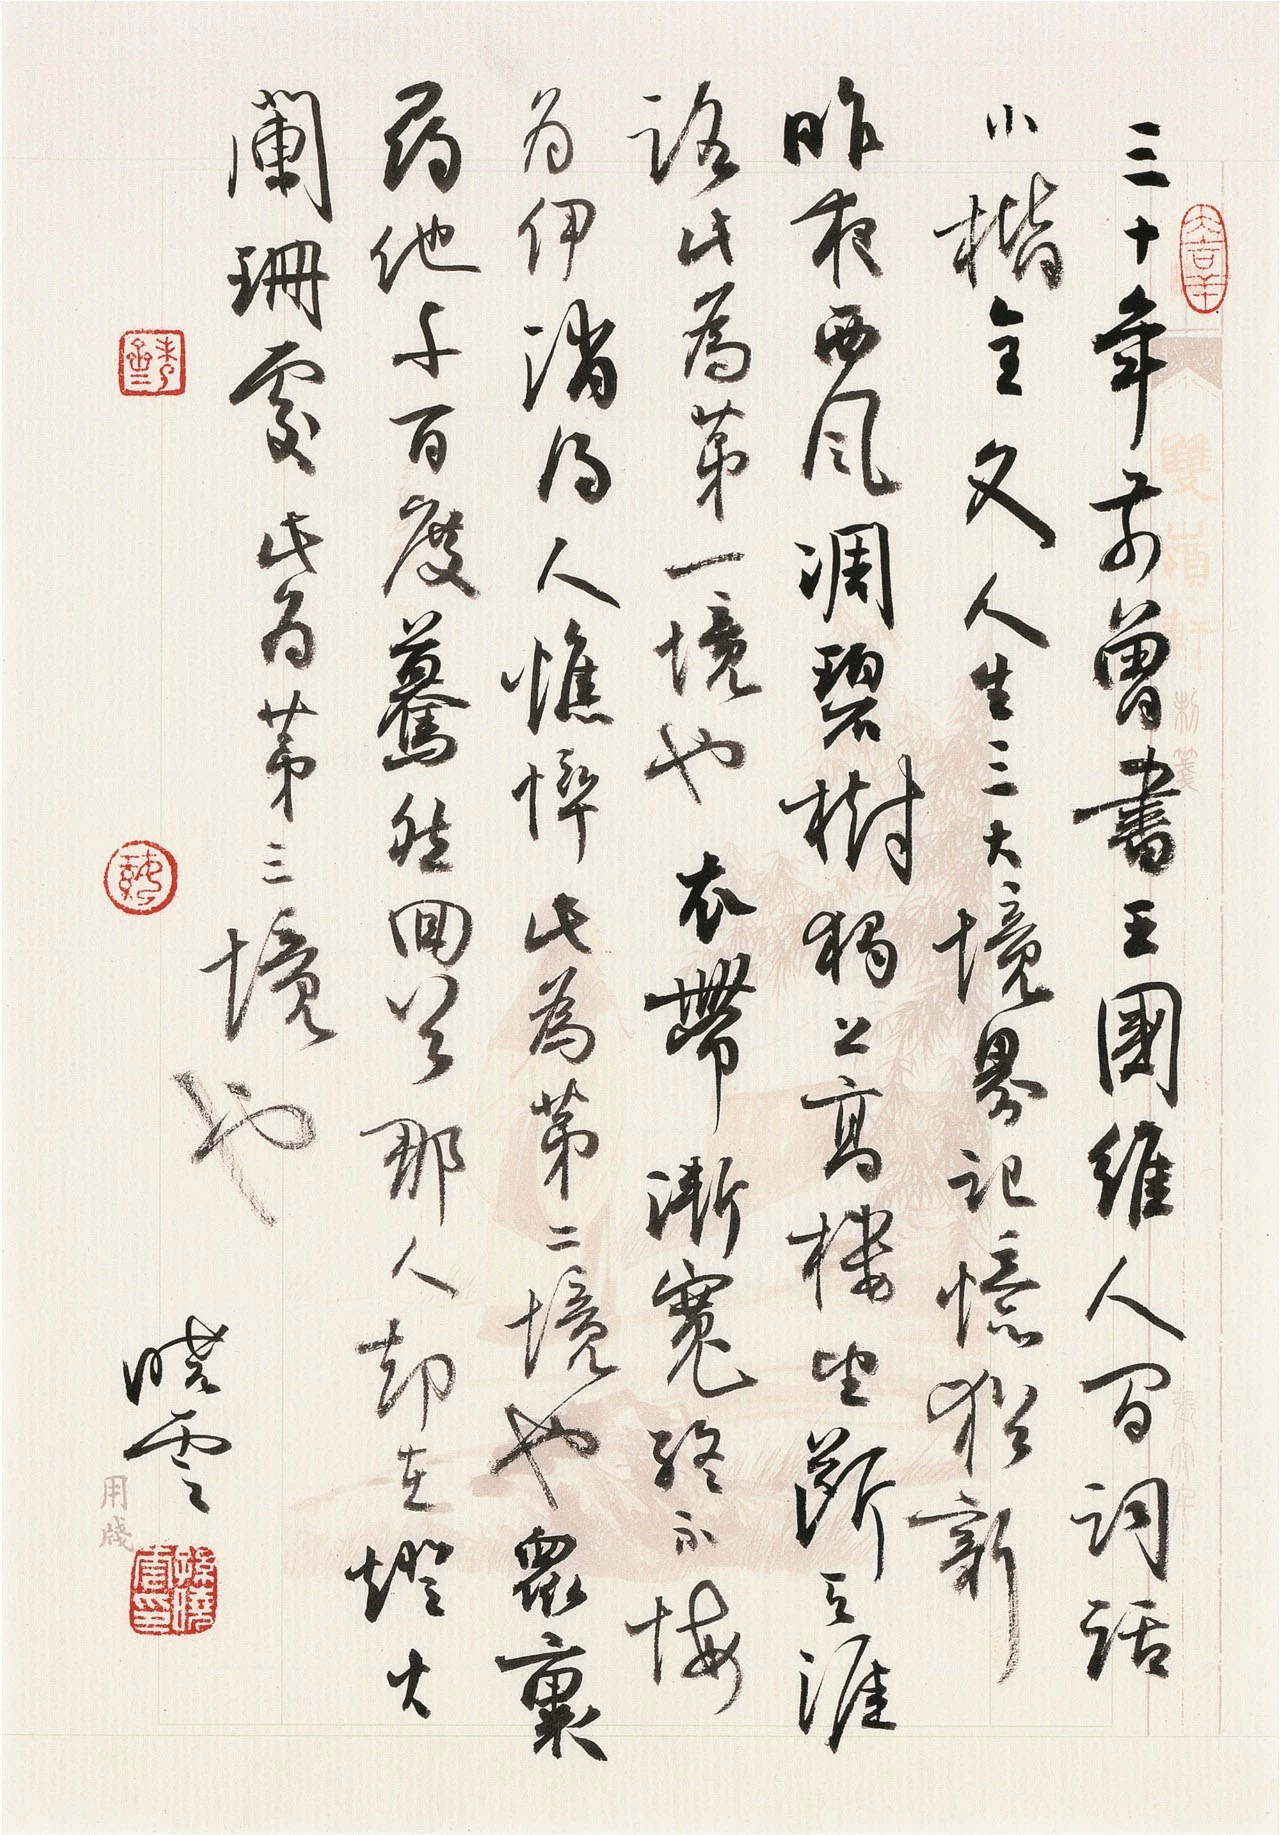 三十年前曾書王國維人間詞話
小楷全文人生三大境界記憶猶新
昨夜西風凋碧樹獨上高樓望斷天涯
路此為第一境也衣帶漸寬終不悔
為伊消得人憔悴此為第二境也眾裏
尋他千百度驀然回首那人却在燈火
闌珊處此為第三境也
曉雲
孫曉雲印
用牋